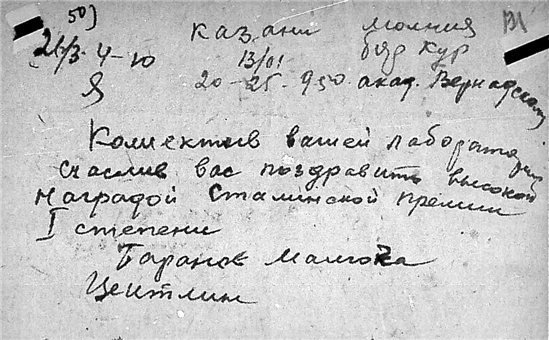 50)
казани молния
21/3 4-10 13/01 бор кур
Я 20-25-950 акад. Вернадскому
Коллектив вашей лаборатории
счаслив вас поздравить высокой
наградой Сталинской премии
I степени
Таранов Малюга
Цейтлин